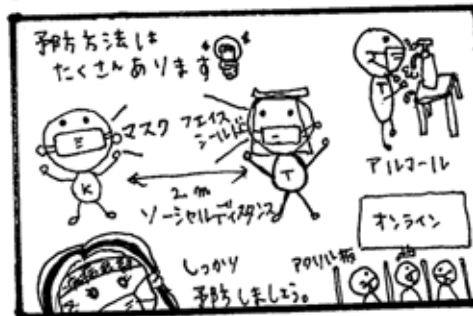 予防方法は
たくさんあります
マスク
フェイス
シールド
K
T
2m
ソーシャルディスタンス
T
アルコール
オンライン
アクリル板
しっかり
予防しましょう。